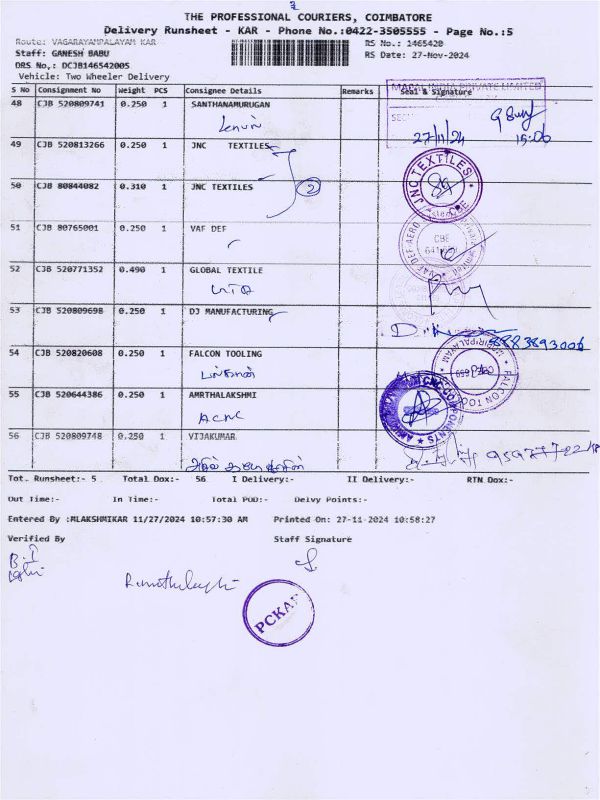 THE PROFESSIONAL COURIERS, COIMBATORE
Delivery Runsheet - KAR - Phone No.:0422-3505555 - Page No.:5
Route: VAGARAYAMPALAYAM KAR
RS No.: 1465420
Staff: GANESH BABU
RS Date: 27-Nov-2024
DRS No,: DCJB146542005
Vehicle: Two Wheeler Delivery
S No Consignment No Weight PCS Consignee Details Remarks Seal & Signature
MAPAL INDIA PRIVATE LIMITED
48 CJB 520809741 0.250 1 SANTHANAMURUGAN
27/11/24 15:06
49 CJB 520813266 0.250 1 JNC TEXTILES
JNC TEXTILES
50 CJB 80844082 0.310 1 JNC TEXTILES
2
CBE
51 CJB 80765001 0.250 1 VAF DEF
CBE
52 CJB 520771352 0.490 1 GLOBAL TEXTILE
53 CJB 520809698 0.250 1 DJ MANUFACTURING
8883893006
54 CJB 520820608 0.250 1 FALCON TOOLING
55 CJB 520644386 0.250 1 AMRTHALAKSHMI
ACNC
56 CJB 520809748 0.250 1 VIJAKUMAR
Tot. Runsheet:- 5 Total Dox:- 56 I Delivery:- II Delivery:- RTN Dox:-
Out Time:- In Time:- Total POD:- Delvy Points:-
Entered By :MLAKSHMIKAR 11/27/2024 10:57:30 AM Printed On: 27-11-2024 10:58:27
Verified By Staff Signature
PCKAR